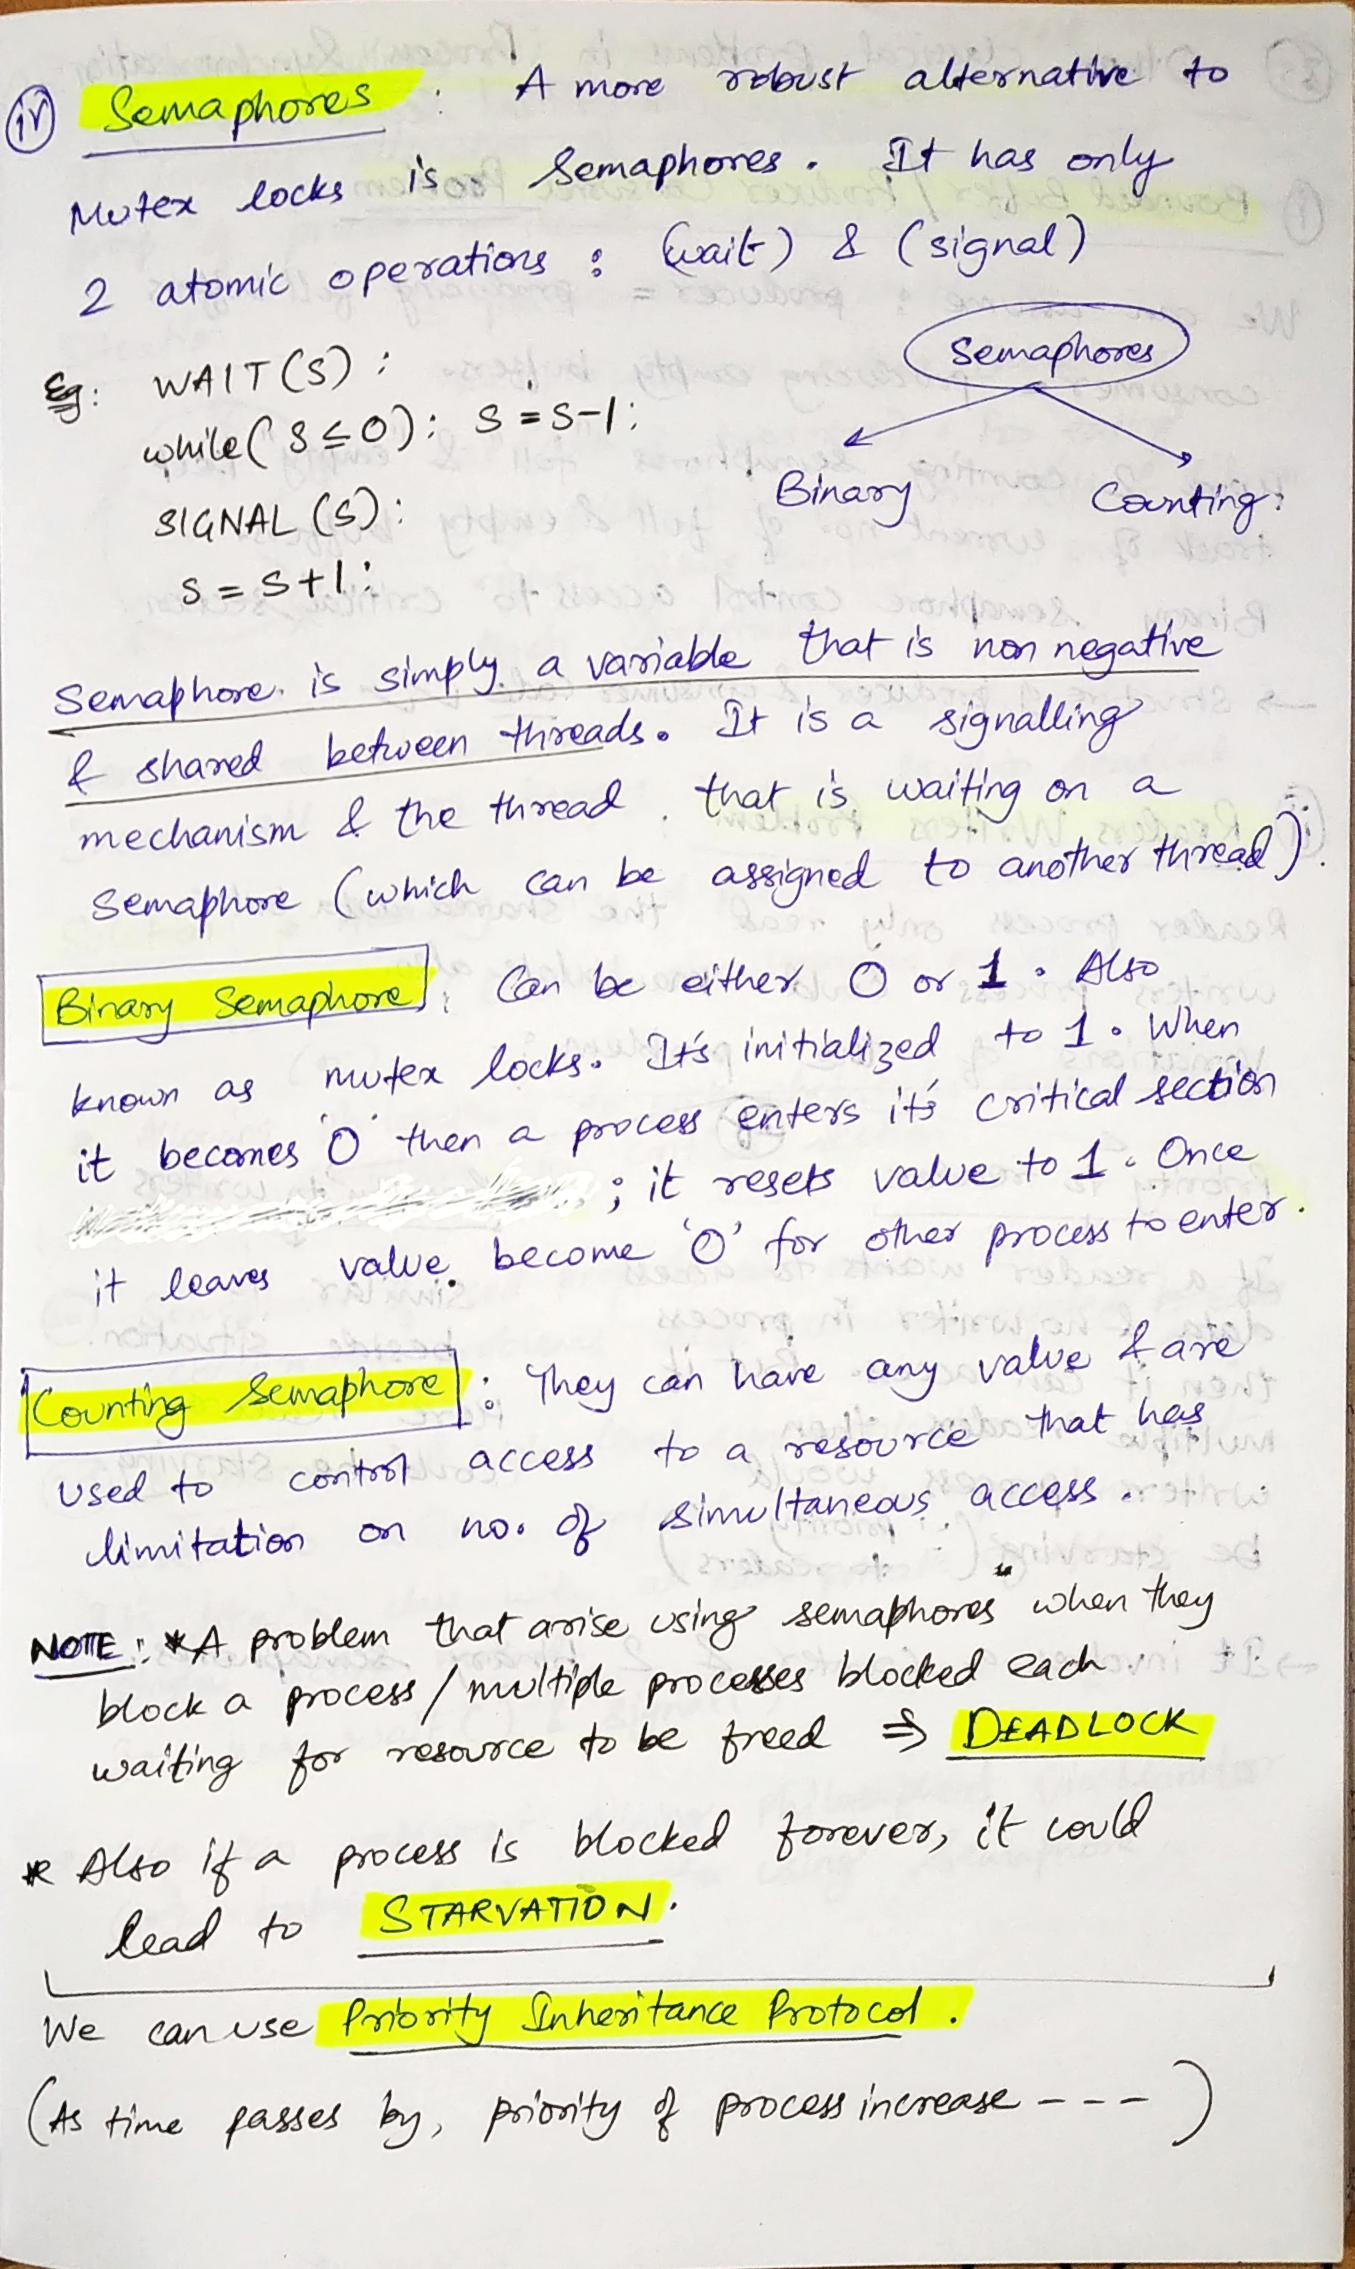 (iv) Semaphores : A more robust alternative to
Mutex locks is Semaphores. It has only
2 atomic operations : (wait) & (signal)
Semaphores
Binary Counting:
Eg: WAIT(S) :
while(S ≤ 0); S = S-1;
SIGNAL (S):
S = S+1;
Semaphore is simply a variable that is non negative
& shared between threads. It is a signalling
mechanism & the thread that is waiting on a
semaphore (which can be assigned to another thread).
Binary Semaphore : Can be either 0 or 1. Also
known as mutex locks. It's initialized to 1. When
it becomes '0' then a process enters it's critical section
; it resets value to 1. Once
it leaves value become '0' for other process to enter.
Counting Semaphore : They can have any value & are
used to control access to a resource that has
limitation on no. of simultaneous access.
NOTE : * A problem that arise using semaphores when they
block a process / multiple processes blocked each
waiting for resource to be freed ⇒ DEADLOCK
* Also if a process is blocked forever, it could
lead to STARVATION.
We can use Priority Inheritance Protocol.
(As time passes by, priority of process increase ---)